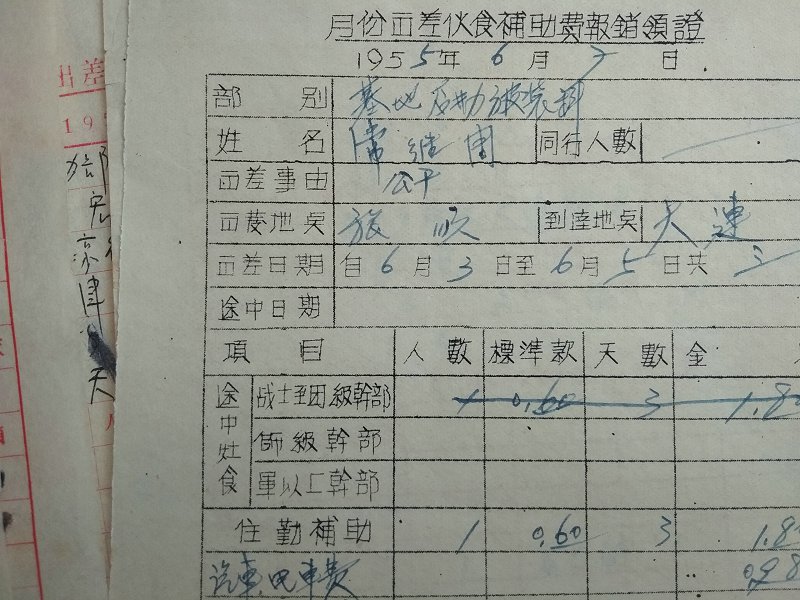 月份出差伙食補助費報銷領證
1955年6月7日
部別 基地后勤被装科
姓名 同行人數
出差事由 公干
出發地点 旅順 到達地点 大連
出差日期 自6月3日至6月5日共三
途中日期
項目 人數 標準款 天數 金
途中灶食 战士至团級幹部 1 0.60 3 1.8
師級幹部
軍以上幹部
住勤補助 1 0.60 3 1.8
汽車.电車费 0.98
出差
19